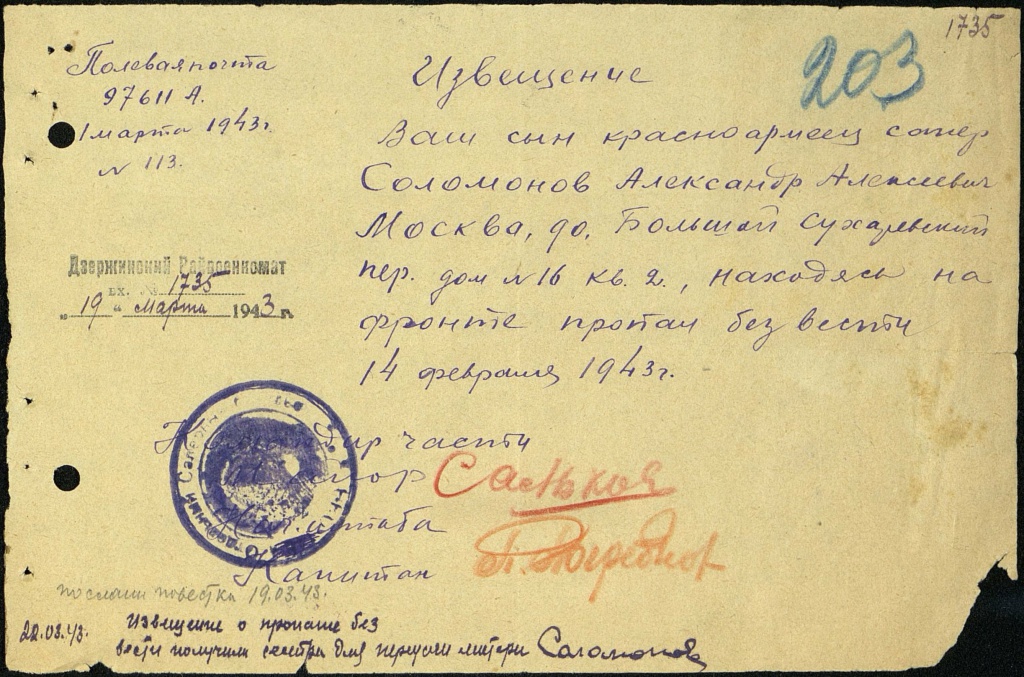 1735
203
Полевая почта
97611 А.
1 марта 1943г.
N 113.
Извещение
Ваш сын красноармеец сапер
Соломонов Александр Алексеевич
Москва, до, Большой Сухаревский
пер. дом N 16 кв. 2., находясь на
фронте пропал без вести
14 февраля 1943г.
Дзержинский Райвоенкомат
вх. № 1735
„19" марта 1943 г.
Командир части
Саньков
Нач. штаба
Капитан
послали повестка 19.03.43.
22.03.43. Извещение о пропаже без
вести получила сестра для передачи матери Соломонов